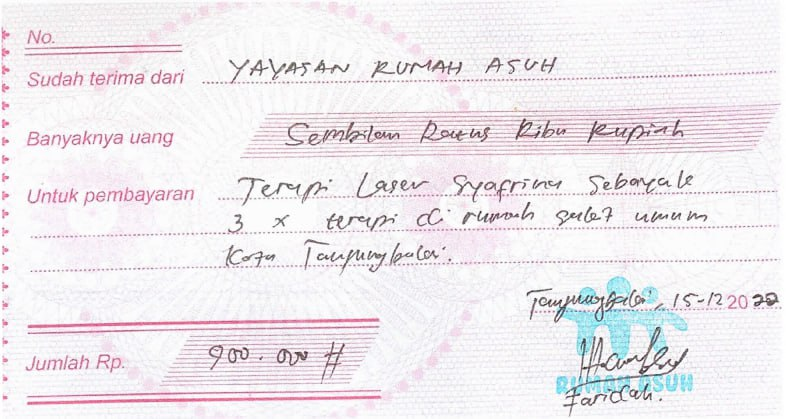 No.
Sudah terima dari YAYASAN RUMAH ASUH
Banyaknya uang Sembilan Ratus Ribu Rupiah
Untuk pembayaran Terapi Laser Syafrina Sebanyak
3 x terapi di rumah sakit umum
Kota Tanjungbalai.
Tanjungbalai, 15-12 2022
Jumlah Rp. 900.000 #
RUMAH ASUH
Faridah.